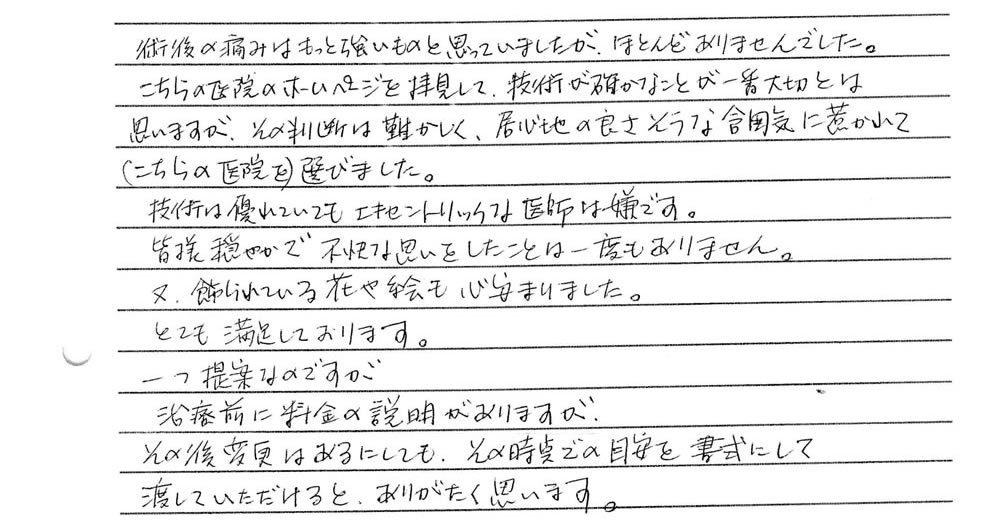 術後の痛みはもっと強いものと思っていましたが、ほとんどありませんでした。
こちらの医院のホームページを拝見して、技術が確かなことが一番大切とは
思いますが、その判断は難かしく、居心地の良さそうな雰囲気に惹かれて
(こちらの医院を)選びました。
技術は優れていてもエキセントリックな医師は嫌です。
皆様穏やかで不快な思いをしたことは一度もありません。
又、飾られている花や絵も心安まりました。
とても満足しております。
一つ提案なのですが
治療前に料金の説明がありますが、
その後変更はあるにしても、その時点での目安を書式にして
渡していただけると、ありがたく思います。